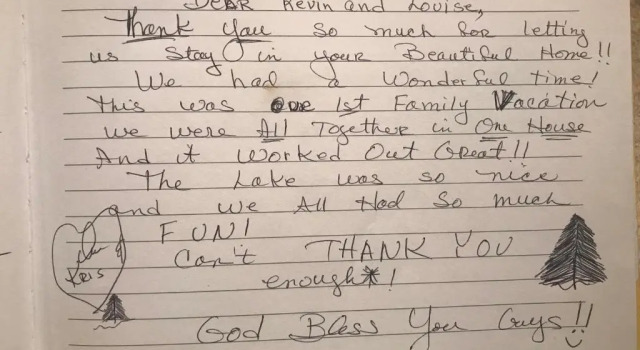 DEAR Kevin and Louise,
Thank You So much for letting
us Stay in your Beautiful Home!!
We had a Wonderful time!
This was our 1st Family Vacation
we were All Together in One House
And it Worked Out Great!!
The Lake was so nice
and we All Had So much
FUN!
Can't THANK YOU
enough*!
Kris
God Bless You Guys!!